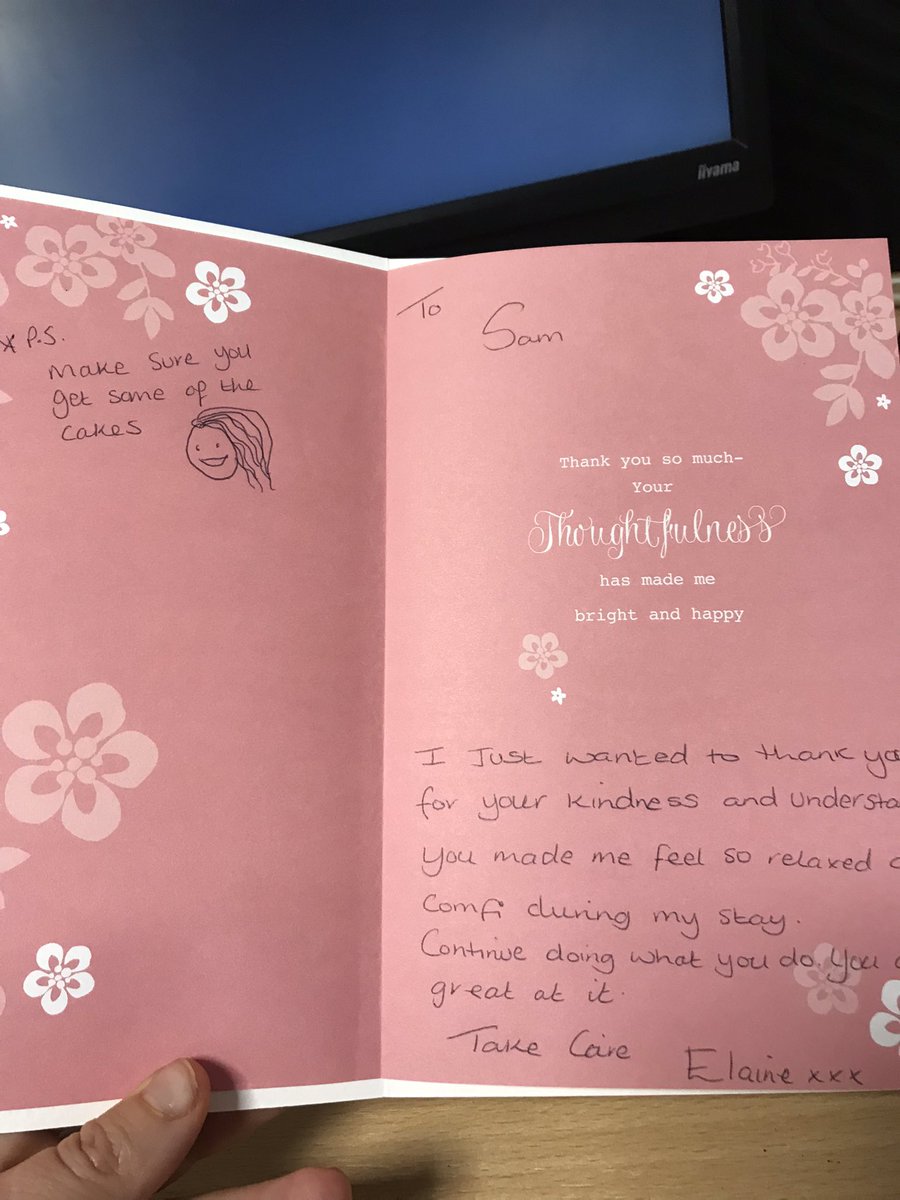 iiyama
P.S.
Make sure you
get some of the
cakes
To
Sam
Thank you so much-
Your
Thoughtfulness
has made me
bright and happy
I Just wanted to thank
for your kindness and
You made me feel so relaxed
Comfi during my stay.
Continue doing what you do. You
great at it.
Take Care
Elaine xxx